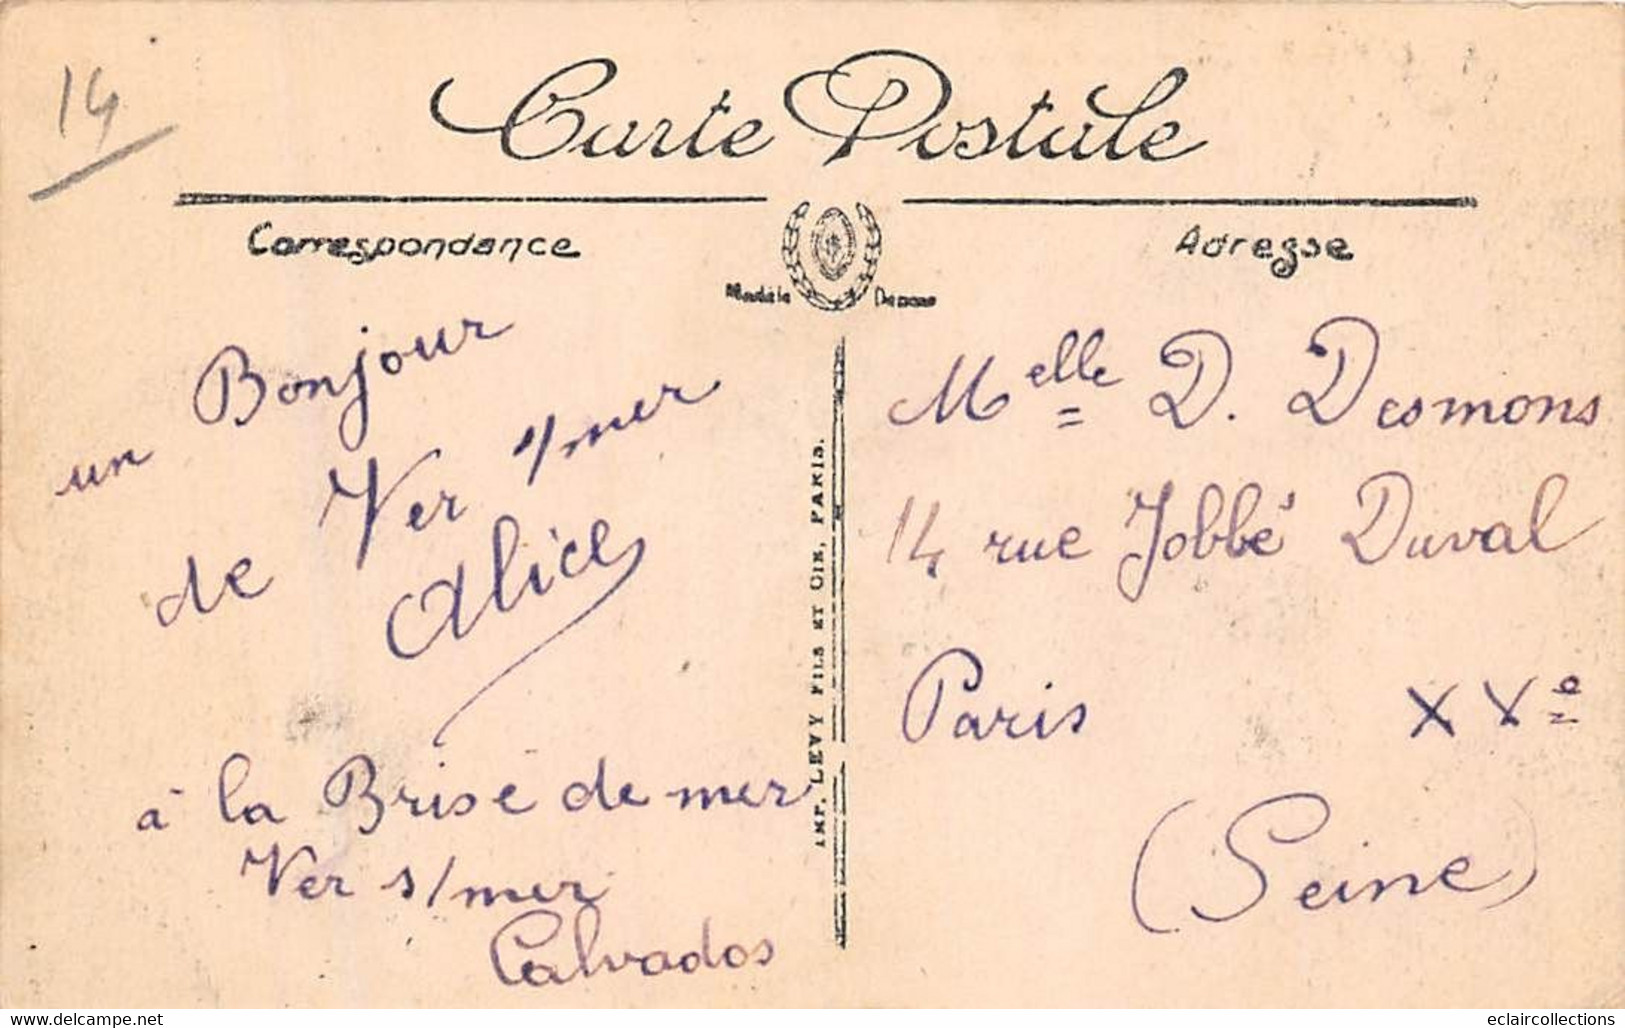 14
Carte Postale
Correspondance
Adresse
Modèle
un Bonjour
de Ver s/mer
Alice
à la Brise de mer
Ver s/mer
Calvados
IMP. LEVY FILS ET CIE, PARIS.
Melle D. Desmons
14 rue Jobbé Duval
Paris XVe
(Seine)
www.delcampe.net
eclaircollections